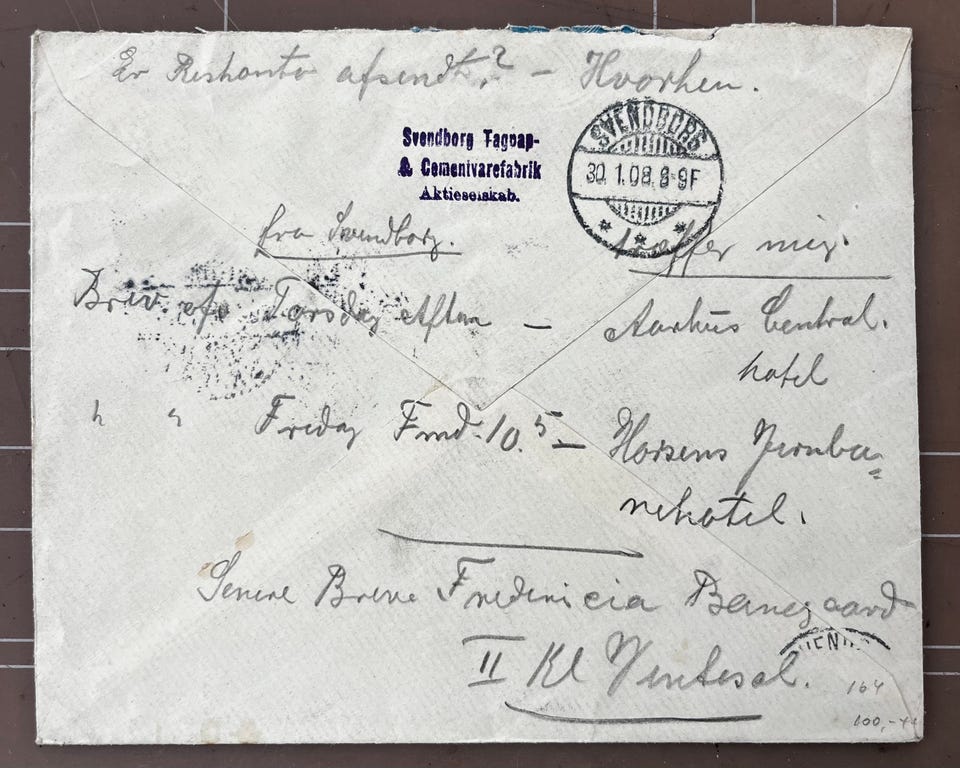 Er Reskonto afsendt? – Hvorhen.
Svendborg Tagpap-
& Cementvarefabrik
Aktieselskab.
SVENDBORG
30.1.08. 8-9F
fra Svendborg. træffer mig.
Brev afs. Torsdag Aften – Aarhus Central-
hotel
" " Fredag Fmd. 10.5 – Horsens Jernba=
nehotel.
Senere Breve Fredericia Banegaard
II Kl Ventesal.
164
100,-